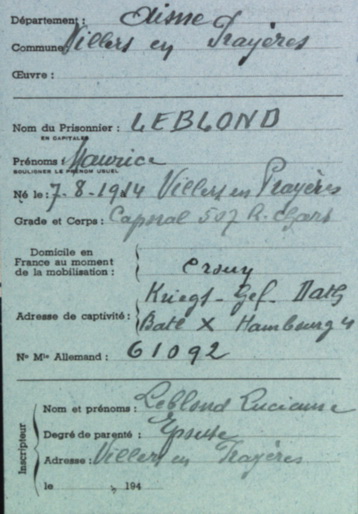 Département : Aisne
Commune Villers en Prayères
Œuvre :
Nom du Prisonnier : LEBLOND
EN CAPITALES
Prénoms : Maurice
SOULIGNER LE PRÉNOM USUEL
Né le : 7-8-1914 Villers en Prayères
Grade et Corps : Caporal 507 R. chars
Domicile en
France au moment
de la mobilisation :
Crouy
Kriegs-Gef.
Adresse de captivité : Batl X Hambourg
No Mle Allemand : 61092
Inscripteur
Nom et prénoms : Leblond Lucienne
Degré de parenté : Epouse
Adresse : Villers en Prayères
le , 194